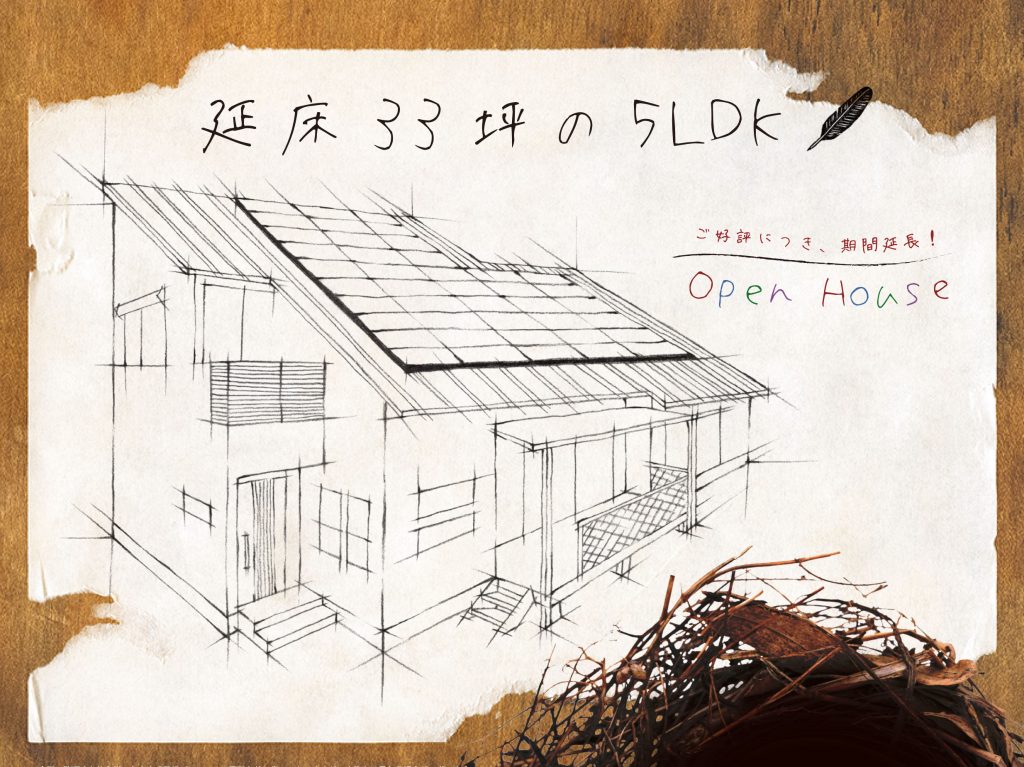 延床33坪の5LDK
ご好評につき、期間延長！
Open House